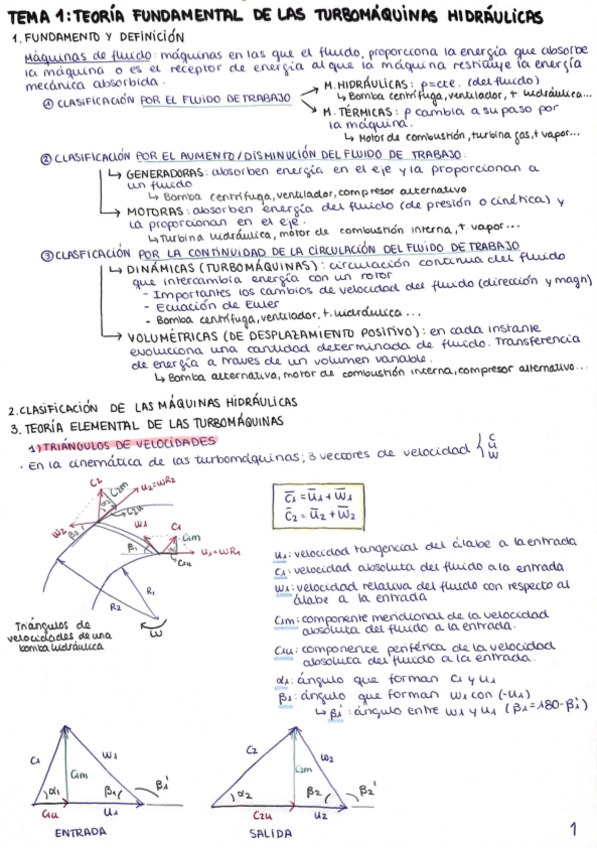 TEMA 1: TEORÍA FUNDAMENTAL DE LAS TURBOMÁQUINAS HIDRÁULICAS
1. FUNDAMENTO Y DEFINICIÓN
Máquinas de fluido: máquinas en las que el fluido, proporciona la energía que absorbe
la máquina o es el receptor de energía al que la máquina restituye la energía
mecánica absorbida.
① CLASIFICACIÓN POR EL FLUIDO DE TRABAJO
→ M. HIDRÁULICAS: ρ=cte. (del fluido)
↳ Bomba centrífuga, ventilador, t. hidráulica...
→ M. TÉRMICAS: ρ cambia a su paso por
la máquina.
↳ Motor de combustión, turbina gas, t vapor...
② CLASIFICACIÓN POR EL AUMENTO/DISMINUCIÓN DEL FLUIDO DE TRABAJO:
→ GENERADORAS: absorben energía en el eje y la proporcionan a
un fluido
↳ Bomba centrífuga, ventilador, compresor alternativo
→ MOTORAS: absorben energía del fluido (de presión o cinética) y
la proporcionan en el eje.
↳ Turbina hidráulica, motor de combustión interna, t vapor...
③ CLASFICACIÓN POR LA CONTINUIDAD DE LA CIRCULACIÓN DEL FLUIDO DE TRABAJO
→ DINÁMICAS (TURBOMÁQUINAS): circulación continua del fluido
que intercambia energía con un rotor
- Importantes los cambios de velocidad del fluido (dirección y magn)
- Ecuación de Euler
- Bomba centrífuga, ventilador, t. hidráulica...
→ VOLUMÉTRICAS (DE DESPLAZAMIENTO POSITIVO): en cada instante
evoluciona una cantidad determinada de fluido. Transferencia
de energía a través de un volumen variable.
↳ Bomba alternativa, motor de combustión interna, compresor alternativo...
2. CLASIFICACIÓN DE LAS MÁQUINAS HIDRÁULICAS
3. TEORÍA ELEMENTAL DE LAS TURBOMÁQUINAS
1) TRIÁNGULOS DE VELOCIDADES
· En la cinemática de las turbomáquinas; 3 vectores de velocidad { c
u
w
C2
C2m
u2=wR2
α2
C2u
w2
β2
w1
C1
C1m
β1
u1=wR1
C1u
R1
R2
w
Triángulos de
velocidades de una
bomba hidráulica
c̄1 = ū1 + w̄1
c̄2 = ū2 + w̄2
u1: velocidad tangencial del álabe a la entrada
C1: velocidad absoluta del fluido a la entrada
W1: velocidad relativa del fluido con respecto al
álabe a la entrada
C1m: componente meridional de la velocidad
absoluta del fluido a la entrada.
C1u: componente periférica de la velocidad
absoluta del fluido a la entrada.
α1: ángulo que forman C1 y u1
β1: ángulo que forman w1 con (-u1)
↳ β1': ángulo entre w1 y u1 (β1=180-β1')
C1
W1
C1m
α1
β1
β1'
C1u
u1
ENTRADA
C2
W2
C2m
α2
β2
β2'
C2u
u2
SALIDA
1